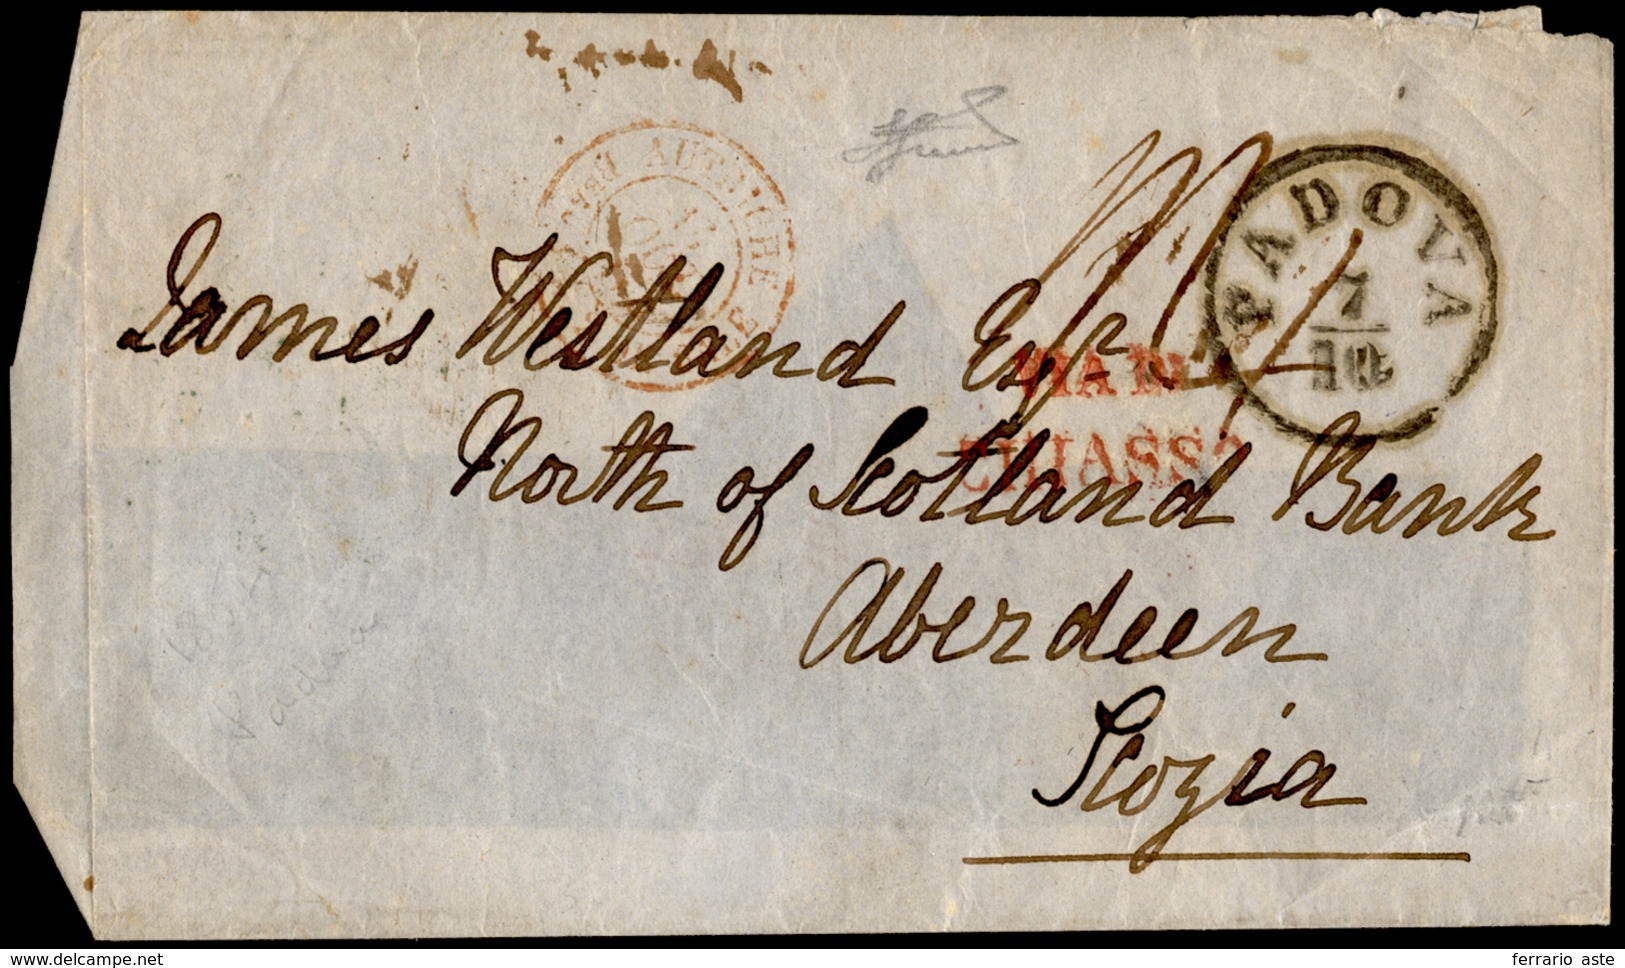 AUTRICHE
PADOVA
7
10
James Westland Esqr
VIA DI
CHIASSO
North of Scotland Bank
Aberdeen
Scozia
Padova
www.delcampe.net
ferrario aste